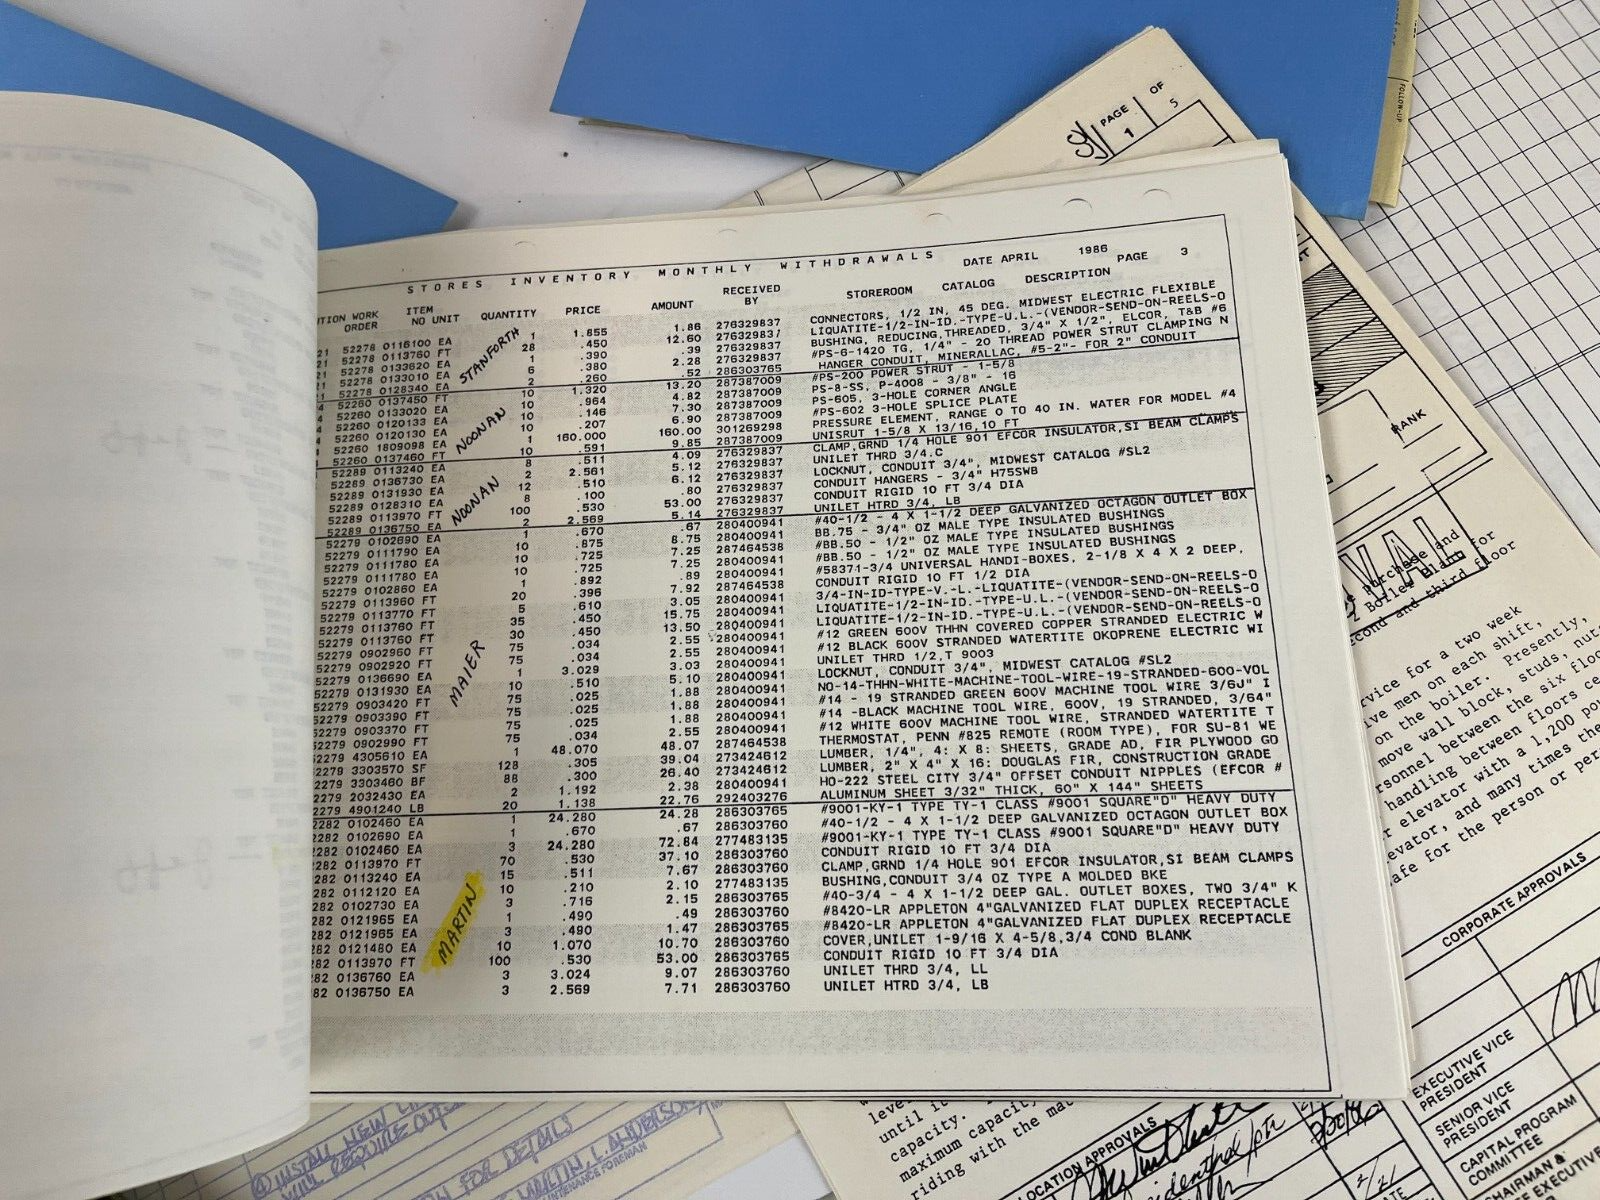 PAGE OF
1 5
FOLLOW-UP
STORES INVENTORY MONTHLY WITHDRAWALS DATE APRIL 1986 PAGE 3
WORK ORDER ITEM NO UNIT QUANTITY PRICE AMOUNT RECEIVED BY STOREROOM CATALOG DESCRIPTION
STANFORTH
52278 0116100 EA 1 1.855 1.86 276329837 CONNECTORS, 1/2 IN, 45 DEG. MIDWEST ELECTRIC FLEXIBLE
52278 0113760 FT 28 .450 12.60 276329837 LIQUATITE-1/2-IN-ID.-TYPE-U.L.-(VENDOR-SEND-ON-REELS-O
52278 0133620 EA 1 .390 .39 276329837 BUSHING, REDUCING,THREADED, 3/4" X 1/2", ELCOR, T&B #6
52278 0133010 EA 6 .380 2.28 276329837 #PS-6-1420 TG, 1/4" - 20 THREAD POWER STRUT CLAMPING N
52278 0128340 EA 2 .260 .52 286303765 HANGER CONDUIT, MINERALLAC, #5-2"- FOR 2" CONDUIT
NOONAN
52260 0137450 FT 10 1.320 13.20 287387009 #PS-200 POWER STRUT - 1-5/8
52260 0133020 EA 10 .964 4.82 287387009 PS-8-SS, P-4008 - 3/8" - 16
52260 0120133 EA 10 .146 7.30 287387009 PS-605, 3-HOLE CORNER ANGLE
52260 0120130 EA 10 .207 6.90 287387009 #PS-602 3-HOLE SPLICE PLATE
52260 1809098 EA 1 160.000 160.00 301269298 PRESSURE ELEMENT, RANGE O TO 40 IN. WATER FOR MODEL #4
52260 0137460 FT 10 .591 9.85 287387009 UNISRUT 1-5/8 X 13/16,10 FT
NOONAN
52289 0113240 EA 8 .511 4.09 276329837 CLAMP,GRND 1/4 HOLE 901 EFCOR INSULATOR,SI BEAM CLAMPS
52289 0136730 EA 2 2.561 5.12 276329837 UNILET THRD 3/4.C
52289 0131930 EA 12 .510 6.12 276329837 LOCKNUT, CONDUIT 3/4", MIDWEST CATALOG #SL2
52289 0128310 EA 8 .100 .80 276329837 CONDUIT HANGERS - 3/4" H75SWB
52289 0113970 FT 100 .530 53.00 276329837 CONDUIT RIGID 10 FT 3/4 DIA
52289 0136750 EA 2 2.569 5.14 276329837 UNILET HTRD 3/4, LB
MAIER
52279 0102690 EA 1 .670 .67 280400941 #40-1/2 - 4 X 1-1/2 DEEP GALVANIZED OCTAGON OUTLET BOX
52279 0111790 EA 10 .875 8.75 280400941 BB.75 - 3/4" OZ MALE TYPE INSULATED BUSHINGS
52279 0111780 EA 10 .725 7.25 287464538 #BB.50 - 1/2" OZ MALE TYPE INSULATED BUSHINGS
52279 0111780 EA 10 .725 7.25 280400941 #BB.50 - 1/2" OZ MALE TYPE INSULATED BUSHINGS
52279 0102860 EA 1 .892 .89 280400941 #58371-3/4 UNIVERSAL HANDI-BOXES, 2-1/8 X 4 X 2 DEEP,
52279 0113960 FT 20 .396 7.92 287464538 CONDUIT RIGID 10 FT 1/2 DIA
52279 0113770 FT 5 .610 3.05 280400941 3/4-IN-ID-TYPE-V.-L.-LIQUATITE-(VENDOR-SEND-ON-REELS-O
52279 0113760 FT 35 .450 15.75 280400941 LIQUATITE-1/2-IN-ID.-TYPE-U.L.-(VENDOR-SEND-ON-REELS-O
52279 0113760 FT 30 .450 13.50 280400941 LIQUATITE-1/2-IN-ID.-TYPE-U.L.-(VENDOR-SEND-ON-REELS-O
52279 0902960 FT 75 .034 2.55 280400941 #12 GREEN 600V THHN COVERED COPPER STRANDED ELECTRIC W
52279 0902920 FT 75 .034 2.55 280400941 #12 BLACK 600V STRANDED WATERTITE OKOPRENE ELECTRIC WI
52279 0136690 EA 1 3.029 3.03 280400941 UNILET THRD 1/2,T 9003
52279 0131930 EA 10 .510 5.10 280400941 LOCKNUT, CONDUIT 3/4", MIDWEST CATALOG #SL2
52279 0903420 FT 75 .025 1.88 280400941 NO-14-THHN-WHITE-MACHINE-TOOL-WIRE-19-STRANDED-600-VOL
52279 0903390 FT 75 .025 1.88 280400941 #14 - 19 STRANDED GREEN 600V MACHINE TOOL WIRE 3/6J" I
52279 0903370 FT 75 .025 1.88 280400941 #14 -BLACK MACHINE TOOL WIRE, 600V, 19 STRANDED, 3/64"
52279 0902990 FT 75 .034 2.55 280400941 #12 WHITE 600V MACHINE TOOL WIRE, STRANDED WATERTITE T
2279 4305610 EA 1 48.070 48.07 287464538 THERMOSTAT, PENN #825 REMOTE (ROOM TYPE), FOR SU-81 WE
2279 3303570 SF 128 .305 39.04 273424612 LUMBER, 1/4", 4: X 8: SHEETS, GRADE AD, FIR PLYWOOD GO
2279 3303460 BF 88 .300 26.40 273424612 LUMBER, 2" X 4" X 16: DOUGLAS FIR, CONSTRUCTION GRADE
2279 2032430 EA 2 1.192 2.38 280400941 HO-222 STEEL CITY 3/4" OFFSET CONDUIT NIPPLES (EFCOR #
2279 4901240 LB 20 1.138 22.76 292403276 ALUMINUM SHEET 3/32" THICK, 60" X 144" SHEETS
MARTIN
2282 0102460 EA 1 24.280 24.28 286303765 #9001-KY-1 TYPE TY-1 CLASS #9001 SQUARE"D" HEAVY DUTY
2282 0102690 EA 1 .670 .67 286303760 #40-1/2 - 4 X 1-1/2 DEEP GALVANIZED OCTAGON OUTLET BOX
282 0102460 EA 3 24.280 72.84 277483135 #9001-KY-1 TYPE TY-1 CLASS #9001 SQUARE"D" HEAVY DUTY
282 0113970 FT 70 .530 37.10 286303760 CONDUIT RIGID 10 FT 3/4 DIA
282 0113240 EA 15 .511 7.67 286303760 CLAMP,GRND 1/4 HOLE 901 EFCOR INSULATOR,SI BEAM CLAMPS
282 0112120 EA 10 .210 2.10 277483135 BUSHING,CONDUIT 3/4 OZ TYPE A MOLDED BKE
282 0102730 EA 3 .716 2.15 286303765 #40-3/4 - 4 X 1-1/2 DEEP GAL. OUTLET BOXES, TWO 3/4" K
282 0121965 EA 1 .490 .49 286303760 #8420-LR APPLETON 4"GALVANIZED FLAT DUPLEX RECEPTACLE
282 0121965 EA 3 .490 1.47 286303765 #8420-LR APPLETON 4"GALVANIZED FLAT DUPLEX RECEPTACLE
282 0121480 EA 10 1.070 10.70 286303760 COVER,UNILET 1-9/16 X 4-5/8,3/4 COND BLANK
282 0113970 FT 100 .530 53.00 286303765 CONDUIT RIGID 10 FT 3/4 DIA
282 0136760 EA 3 3.024 9.07 286303760 UNILET THRD 3/4, LL
82 0136750 EA 3 2.569 7.71 286303760 UNILET HTRD 3/4, LB
RANK
Purchase and
Boiler Plant for
second and third floor
for a two week
men on each shift,
on the boiler. Presently,
move wall block, studs,
between the six
handling between floors
elevator with a 1,200
and many times the
for the person or
until
capacity.
maximum
riding with the
CORPORATE APPROVALS
LOCATION APPROVALS
EXECUTIVE VICE PRESIDENT
SENIOR VICE PRESIDENT
CAPITAL PROGRAM COMMITTEE
CHAIRMAN &
EXECUTIVE
INSTALL NEW
REQUIRE
FOR DETAILS
L. ANDERSON
FOREMAN